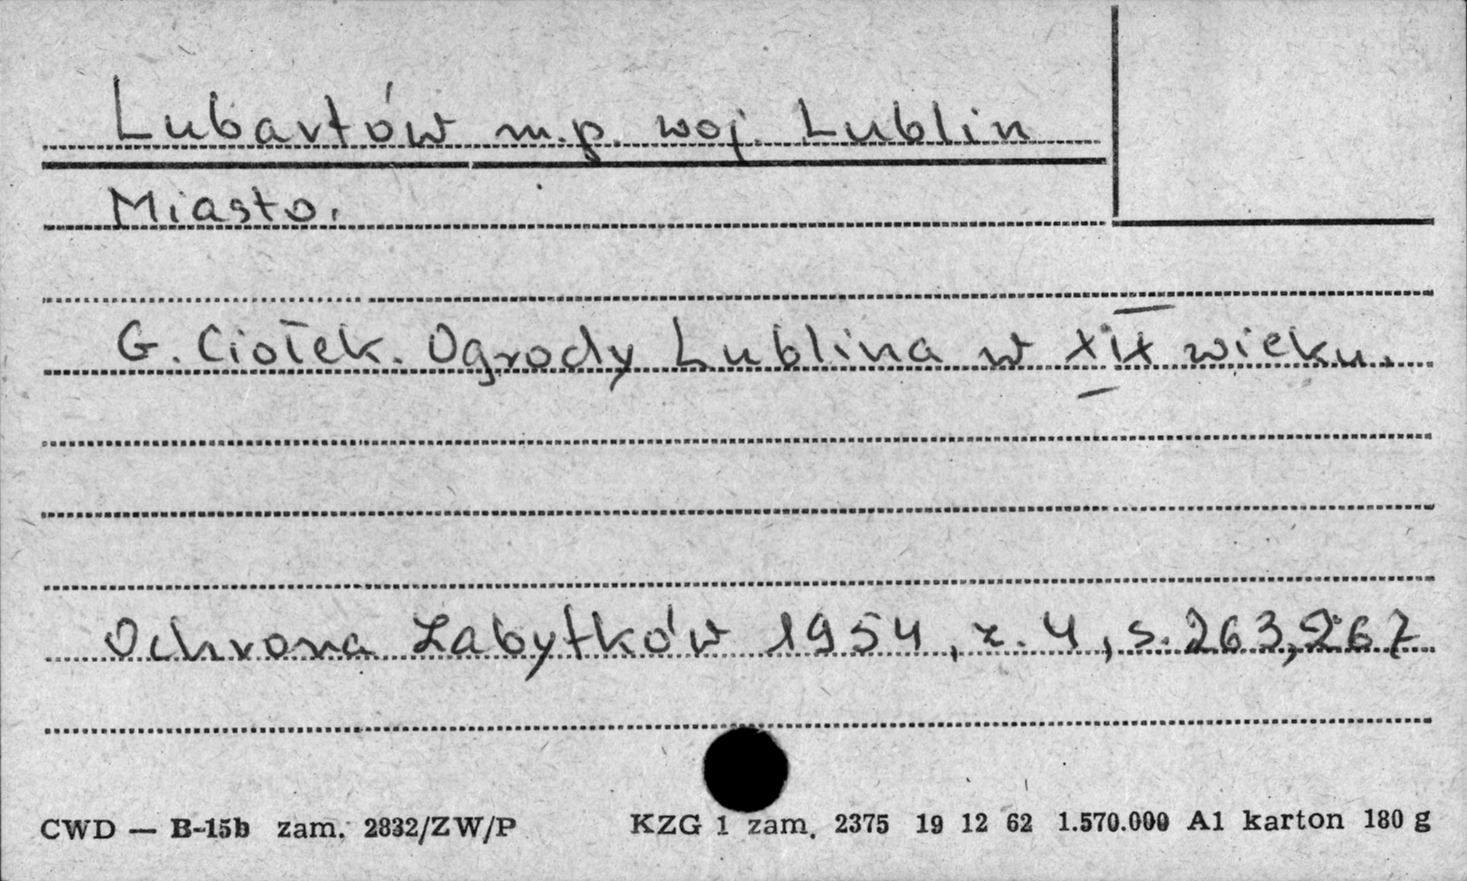 Lubartów m.p. woj. Lublin
Miasto.
G. Ciołek. Ogrody Lublina w XIX wieku.
Ochrona Zabytków 1954, z. 4, s. 263, 267
CWD — B-15b zam. 2832/ZW/P KZG 1 zam. 2375 19 12 62 1.570.000 A1 karton 180 g